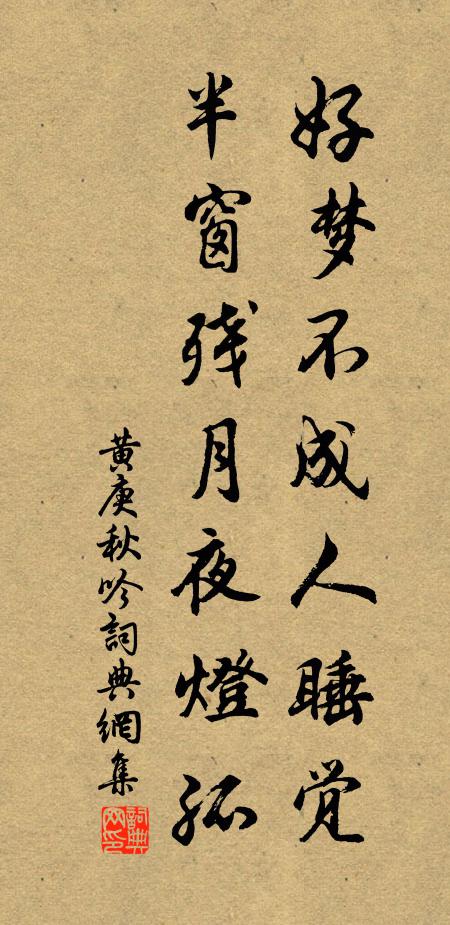 好梦不成人睡觉
半窗残月夜燈孤
黄庚秋吟詞典網集
詞典網印